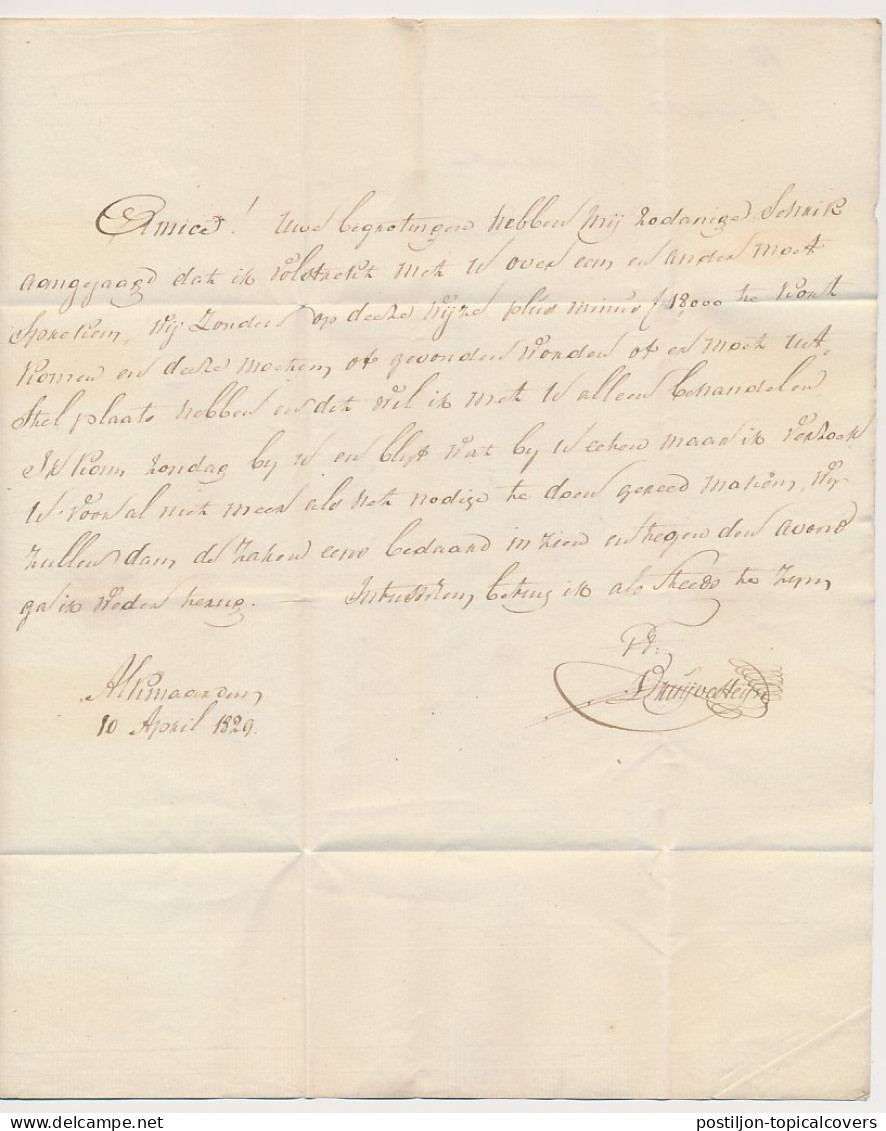 Amice! Uwe begrotingen hebben mij zodanige schrik
aangejaagd dat ik volstrekt met U over een en ander moet
spreken, wij zouden op deeze wijze plus minus f 18,000 te kort
komen en deeze moeten, of gevonden worden of er moet uit,
stel plaats hebben en dit wil ik met U alleen behandelen
Ik kom zondag by U en blyf wat by U eeten maar ik verzoek
U vooral niet meer als het nodige te doen gereed maken, wy
zullen dan de zaken eens bedaard inzien en tegen den avond
ga ik weder terug. — Intusschen betuig ik als steeds te zyn,
Alkmaar den,
10 April 1829.
postiljon-topicalcovers